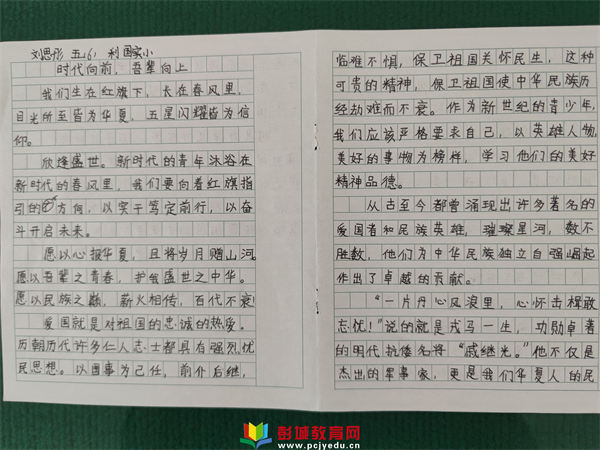 刘思彤 五(6) 利国实小
时代向前，吾辈向上
我们生在红旗下，长在春风里，
目光所至皆为华夏，五星闪耀皆为信
仰。
欣逢盛世。新时代的青年沐浴在
新时代的春风里，我们要向着红旗指
引的方向，以实干笃定前行，以奋
斗开启未来。
愿以心报华夏，且将岁月赠山河。
愿以吾辈之青春，护我盛世之中华。
愿以民族之巅，薪火相传，百代不衰！
爱国就是对祖国的忠诚的热爱。
历朝历代许多仁人志士都具有强烈忧
民思想。以国事为己任，前仆后继，
临难不惧，保卫祖国关怀民生，这种
可贵的精神，保卫祖国使中华民族历
经劫难而不衰。作为新世纪的青少年，
我们应该严格要求自己，以英雄人物，
美好的事物为榜样，学习他们的美好
精神品德。
从古至今都曾涌现出许多著名的
爱国者和民族英雄，璀璨星河，数不
胜数，他们为中华民族独立自强崛起
作出了卓越的贡献。
“一片丹心风浪里，心怀击楫敢
忘忧！”说的就是戎马一生，功勋卓著
的明代抗倭名将“戚继光。”他不仅是
杰出的军事家，更是我们华夏人的民
彭城教育网
www.pcjyedu.cn